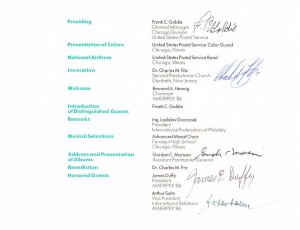 Presiding
Frank C. Goldie
General Manager
Chicago Division
United States Postal Service
F C Goldie
Presentation of Colors
United States Postal Service Color Guard
Chicago, Illinois
National Anthem
United States Postal Service Band
Chicago, Illinois
Invocation
Dr. Charles M. Fitz
Second Presbyterian Church
Elizabeth, New Jersey
Welcome
Bernard A. Hennig
Chairman
AMERIPEX '86
Introduction
of Distinguished Guests
Frank C. Goldie
Remarks
Ing. Ladislav Dvoracek
President
International Federation of Philately
Musical Selections
Advanced Mixed Choir
Farragut High School
Chicago, Illinois
Address and Presentation
of Albums
Gordon C. Morison
Assistant Postmaster General
Benediction
Dr. Charles M. Fitz
Honored Guests
James Duffy
President
AMERIPEX '86
James E Duffy
Arthur Salm
Vice President
International Relations
AMERIPEX '86